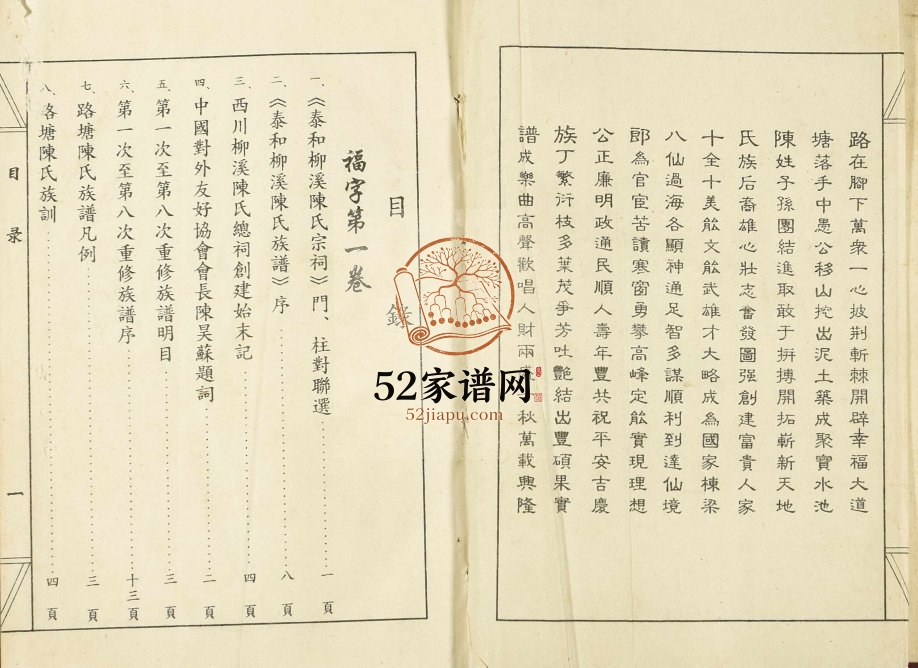 路在腳下萬衆一心披荆斬棘開辟幸福大道
塘落手中愚公移山挖出泥土築成聚寶水池
陳姓子孫團結進取敢于拚搏開拓嶄新天地
氏族后裔雄心壯志奮發圖强創建富貴人家
十全十美能文能武雄才大略成為國家棟梁
八仙過海各顯神通足智多謀順利到達仙境
郎為官宦苦讀寒窗勇攀高峰定能實現理想
公正廉明政通民順人壽年豐共祝平安吉慶
族丁繁衍枝多葉茂爭芳吐艷結出豐碩果實
譜成樂曲高聲歡唱人財兩 秋萬載興隆
目錄
福字第一卷
一、《泰和柳溪陳氏宗祠》門、柱對聯選 一 頁
二、《泰和柳溪陳氏族譜》序 八 頁
三、西川柳溪陳氏總祠創建始末記 四 頁
四、中國對外友好協會會長陳昊蘇題詞 二 頁
五、第一次至第八次重修族譜明目 三 頁
六、第一次至第八次重修族譜序 十三 頁
七、路塘陳氏族譜凡例 三 頁
八、路塘陳氏族訓 四 頁
目录
一
52家谱网
52jiapu.com